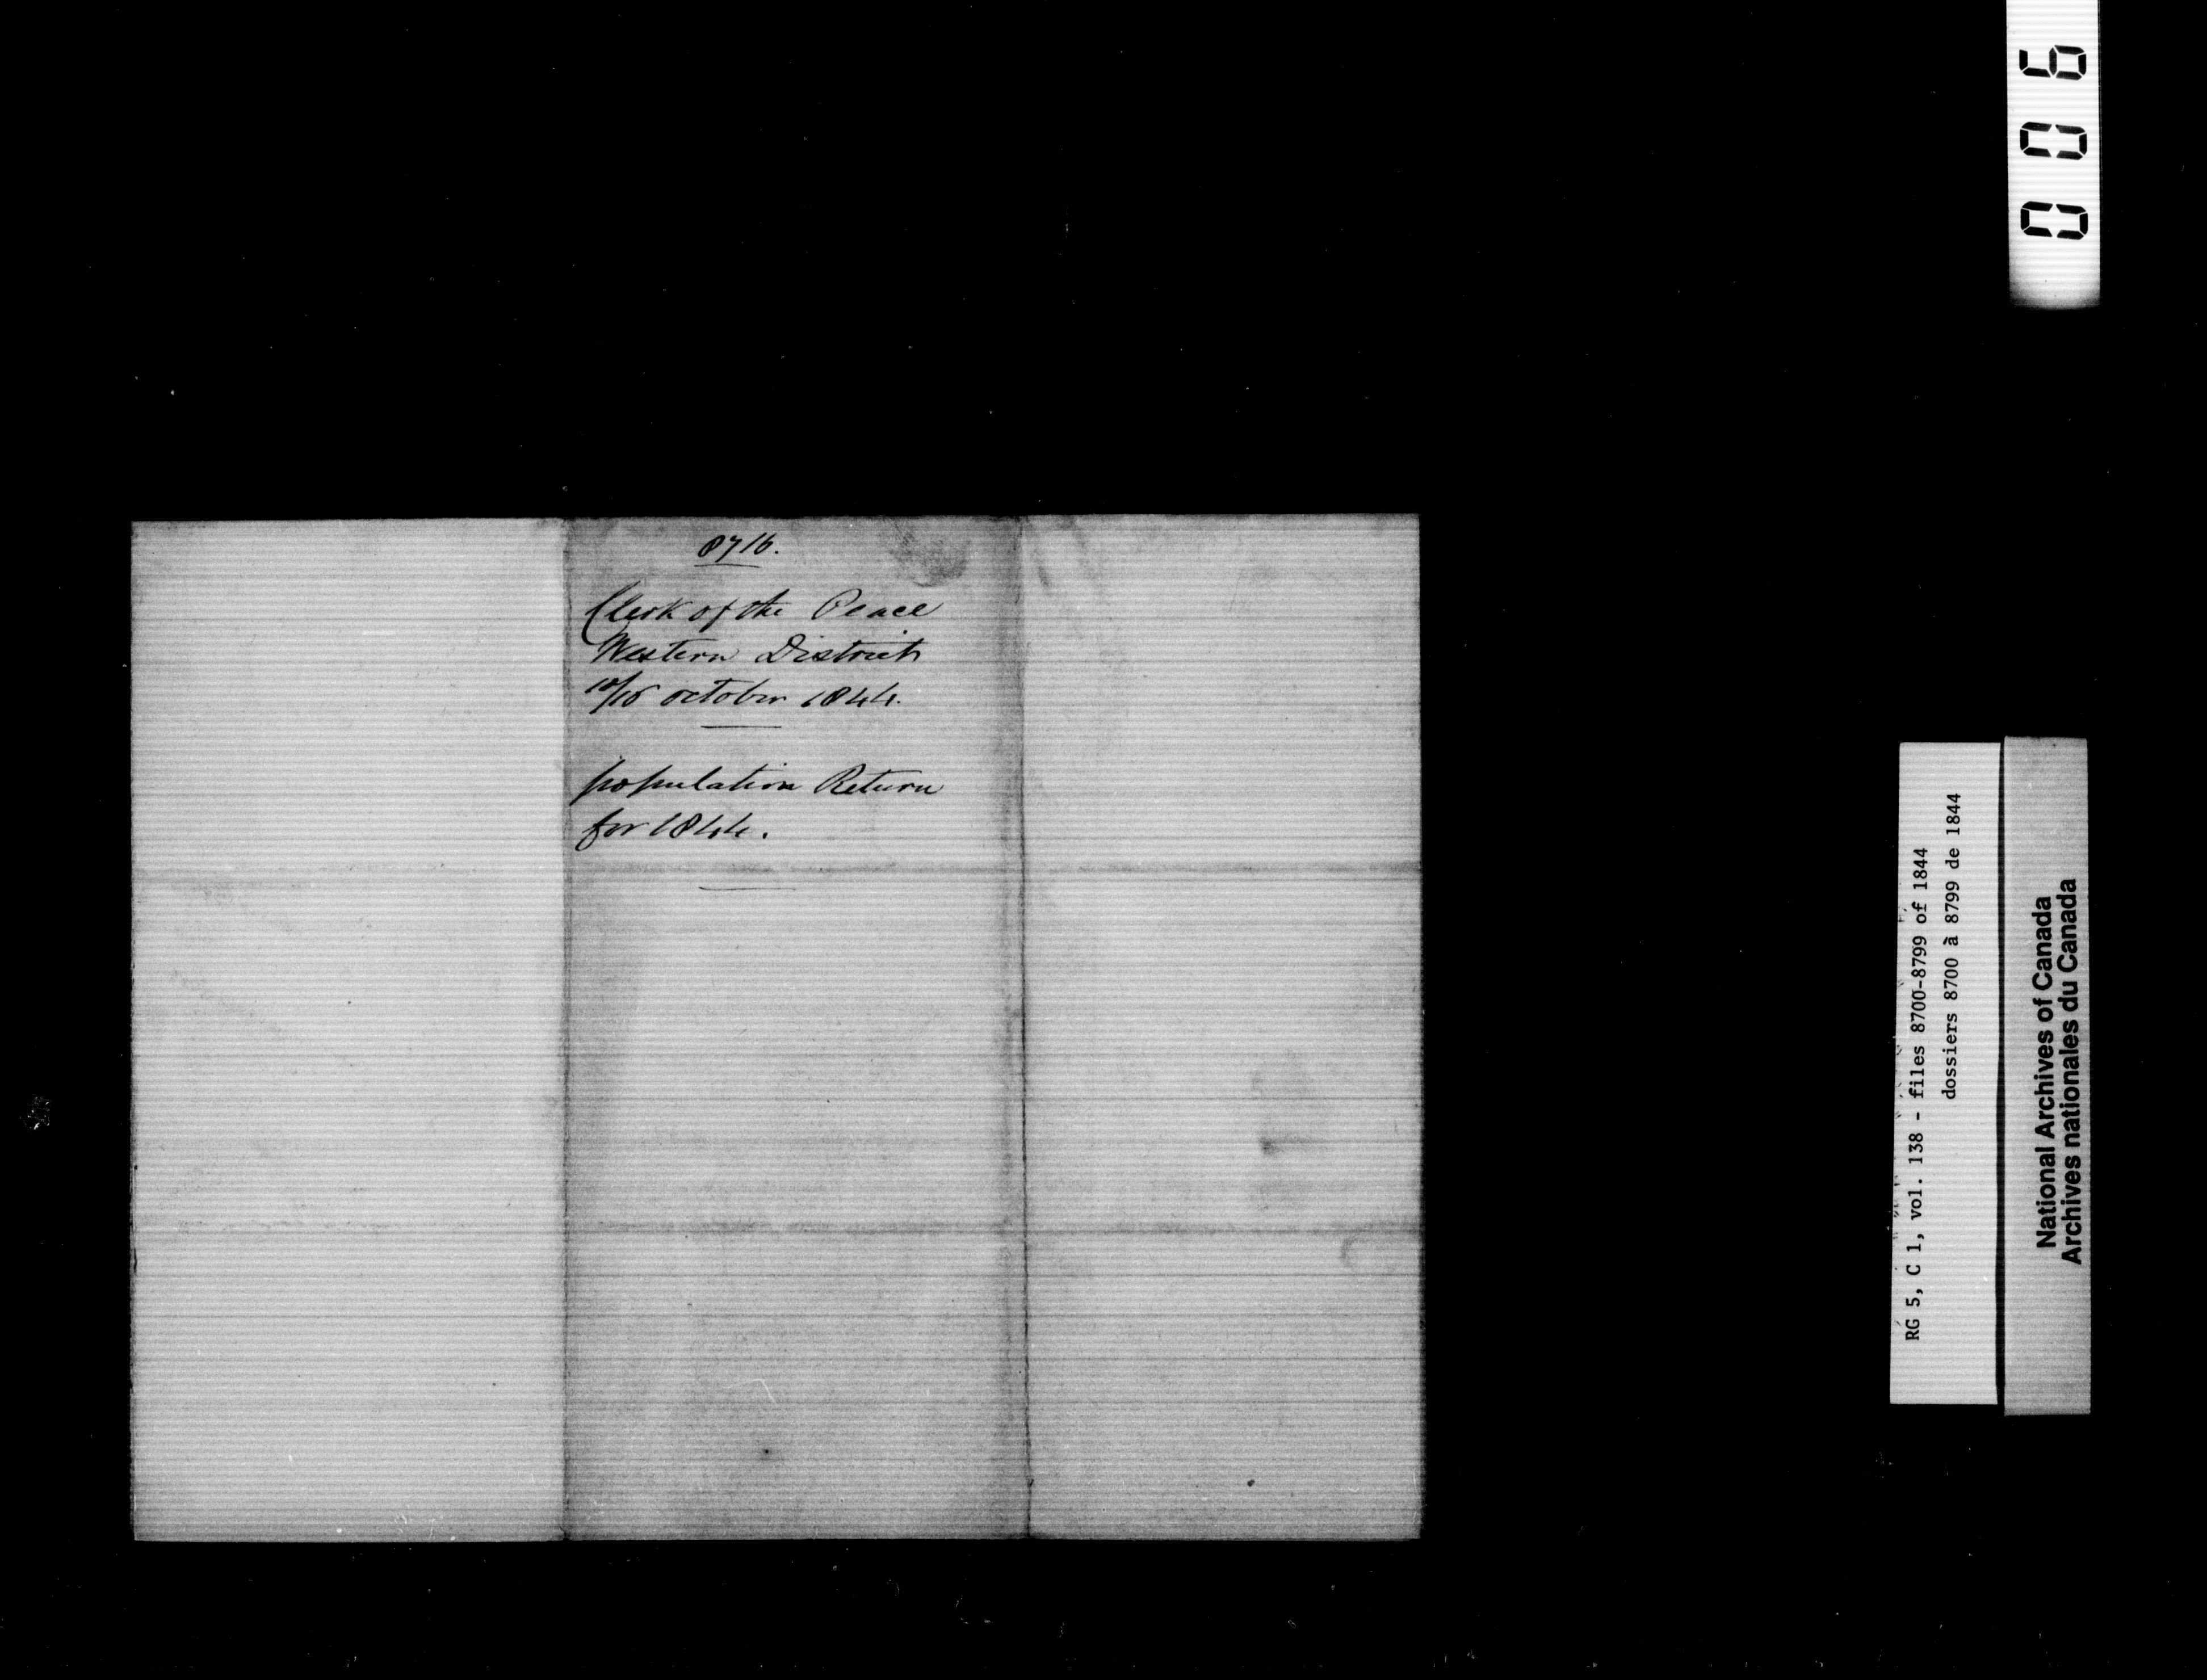 8716.
Clerk of the Peace
Western District
10/16 october 1844.
population Return
for 1844.
006
RG 5, C 1, vol. 138 - files 8700-8799 of 1844
dossiers 8700 à 8799 de 1844
National Archives of Canada
Archives nationales du Canada